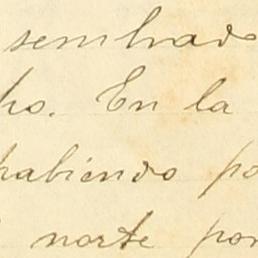 sembrado
ho. En la
habiendo po
norte por